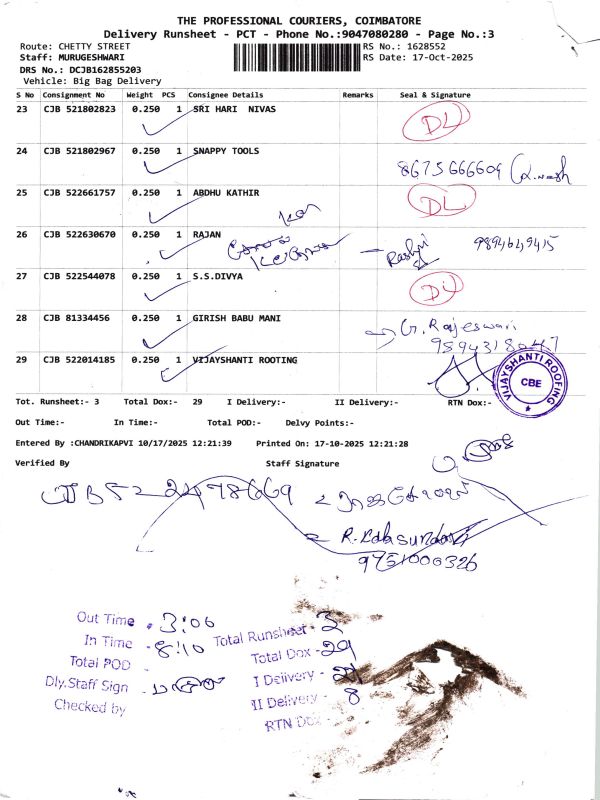 THE PROFESSIONAL COURIERS, COIMBATORE
Delivery Runsheet - PCT - Phone No.:9047080280 - Page No.:3
Route: CHETTY STREET RS No.: 1628552
Staff: MURUGESHWARI RS Date: 17-Oct-2025
DRS No.: DCJB162855203
Vehicle: Big Bag Delivery
S No Consignment No Weight PCS Consignee Details Remarks Seal & Signature
23 CJB 521802823 0.250 1 SRI HARI NIVAS DL
24 CJB 521802967 0.250 1 SNAPPY TOOLS
8675666609
25 CJB 522661757 0.250 1 ABDHU KATHIR DL
26 CJB 522630670 0.250 1 RAJAN
9894649415
27 CJB 522544078 0.250 1 S.S.DIVYA DL
28 CJB 81334456 0.250 1 GIRISH BABU MANI
G. Rajeswari
29 CJB 522014185 0.250 1 VIJAYSHANTI ROOTING
VIJAYSHANTI ROOFING CBE
Tot. Runsheet:- 3 Total Dox:- 29 I Delivery:- II Delivery:- RTN Dox:-
Out Time:- In Time:- Total POD:- Delvy Points:-
Entered By :CHANDRIKAPVI 10/17/2025 12:21:39 Printed On: 17-10-2025 12:21:28
Verified By Staff Signature
9751000326
Out Time - 3:06 Total Runsheet - 3
In Time - 8:10 Total Dox - 29
Total POD - I Delivery -
Dly.Staff Sign - II Delivery - 8
Checked by RTN Dox -